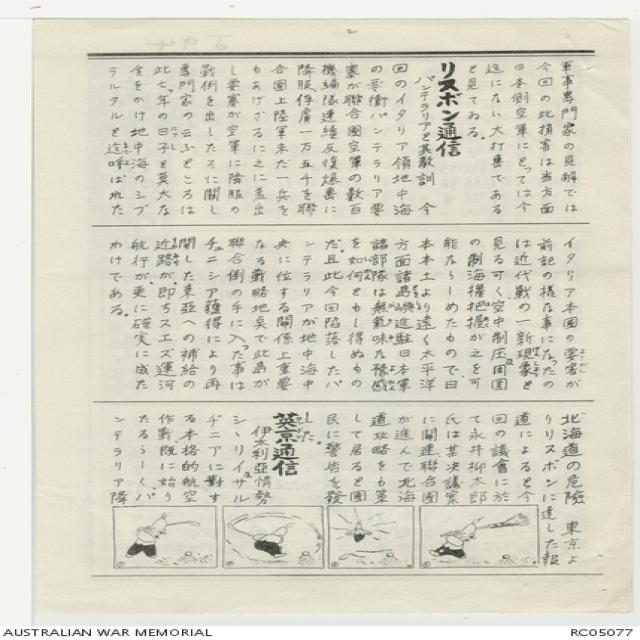 軍事専門家の見解では
今回の此損害は当方面
日本側空軍にとつては今
迄にない大打撃である
と見てゐる。
リスボン通信
パンテラリアと其教訓 今
回のイタリア領地中海
の要衝パンテラリア要
塞が聯合國空軍の数百
機編隊連續反復爆撃に
降服、俘虜一万五千を聯
合國上陸軍未だ一兵を
もあげざるに之に差出
し要塞が空軍に降服の
戦例を出したろに関し
専門家の云ふところは
此七年の日子と莫大な
金をかけ地中海のシブ
ラルタルと迄呼ばれた
イタリア本國の要害が
前記の様な事になつたの
は近代戦の一新現象と
見る可く空中制圧、周囲
の制海權把握が之を可
能ならしめたもので、日
本本土より遠く太平洋
方面諸島嶼進駐日本軍
諸部隊は無氣味な豫感
を如何ともし得ぬもの
だ。且此今回陥落したパ
ンテラリアが地中海中
央に位する関係上重要
なる戦略地点で此島が
聯合側の手に入つた事は
チュニシア獲得により再
開した東亜への補給の
近路が即ちスエズ運河
航行が、更に確実に成た
わけである。
北海道の危險 東京よ
りリスボンに達した報
道によると今
回の議會に於
て永井柳太郎
氏は某決議案
に関連聯合國
が進んで北海
道攻略をも策
して居ると國
民に警告を發
した。
英京通信
伊太利亜情勢
シヽリイ、サル
ヂニアに對す
る本格的航空
作戦既に始り
たるらしく、パ
ンテラリア降
AUSTRALIAN WAR MEMORIAL
RC05077